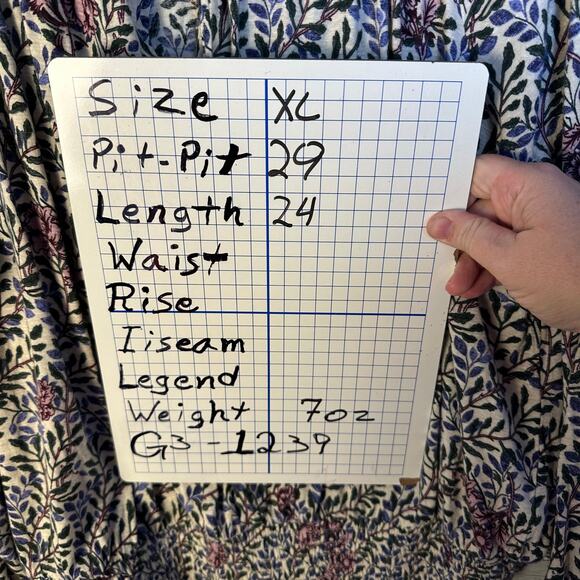 Size XL
Pit-Pit 29
Length 24
Waist
Rise
Iiseam
Legend
Weight 7oz
G3-1239